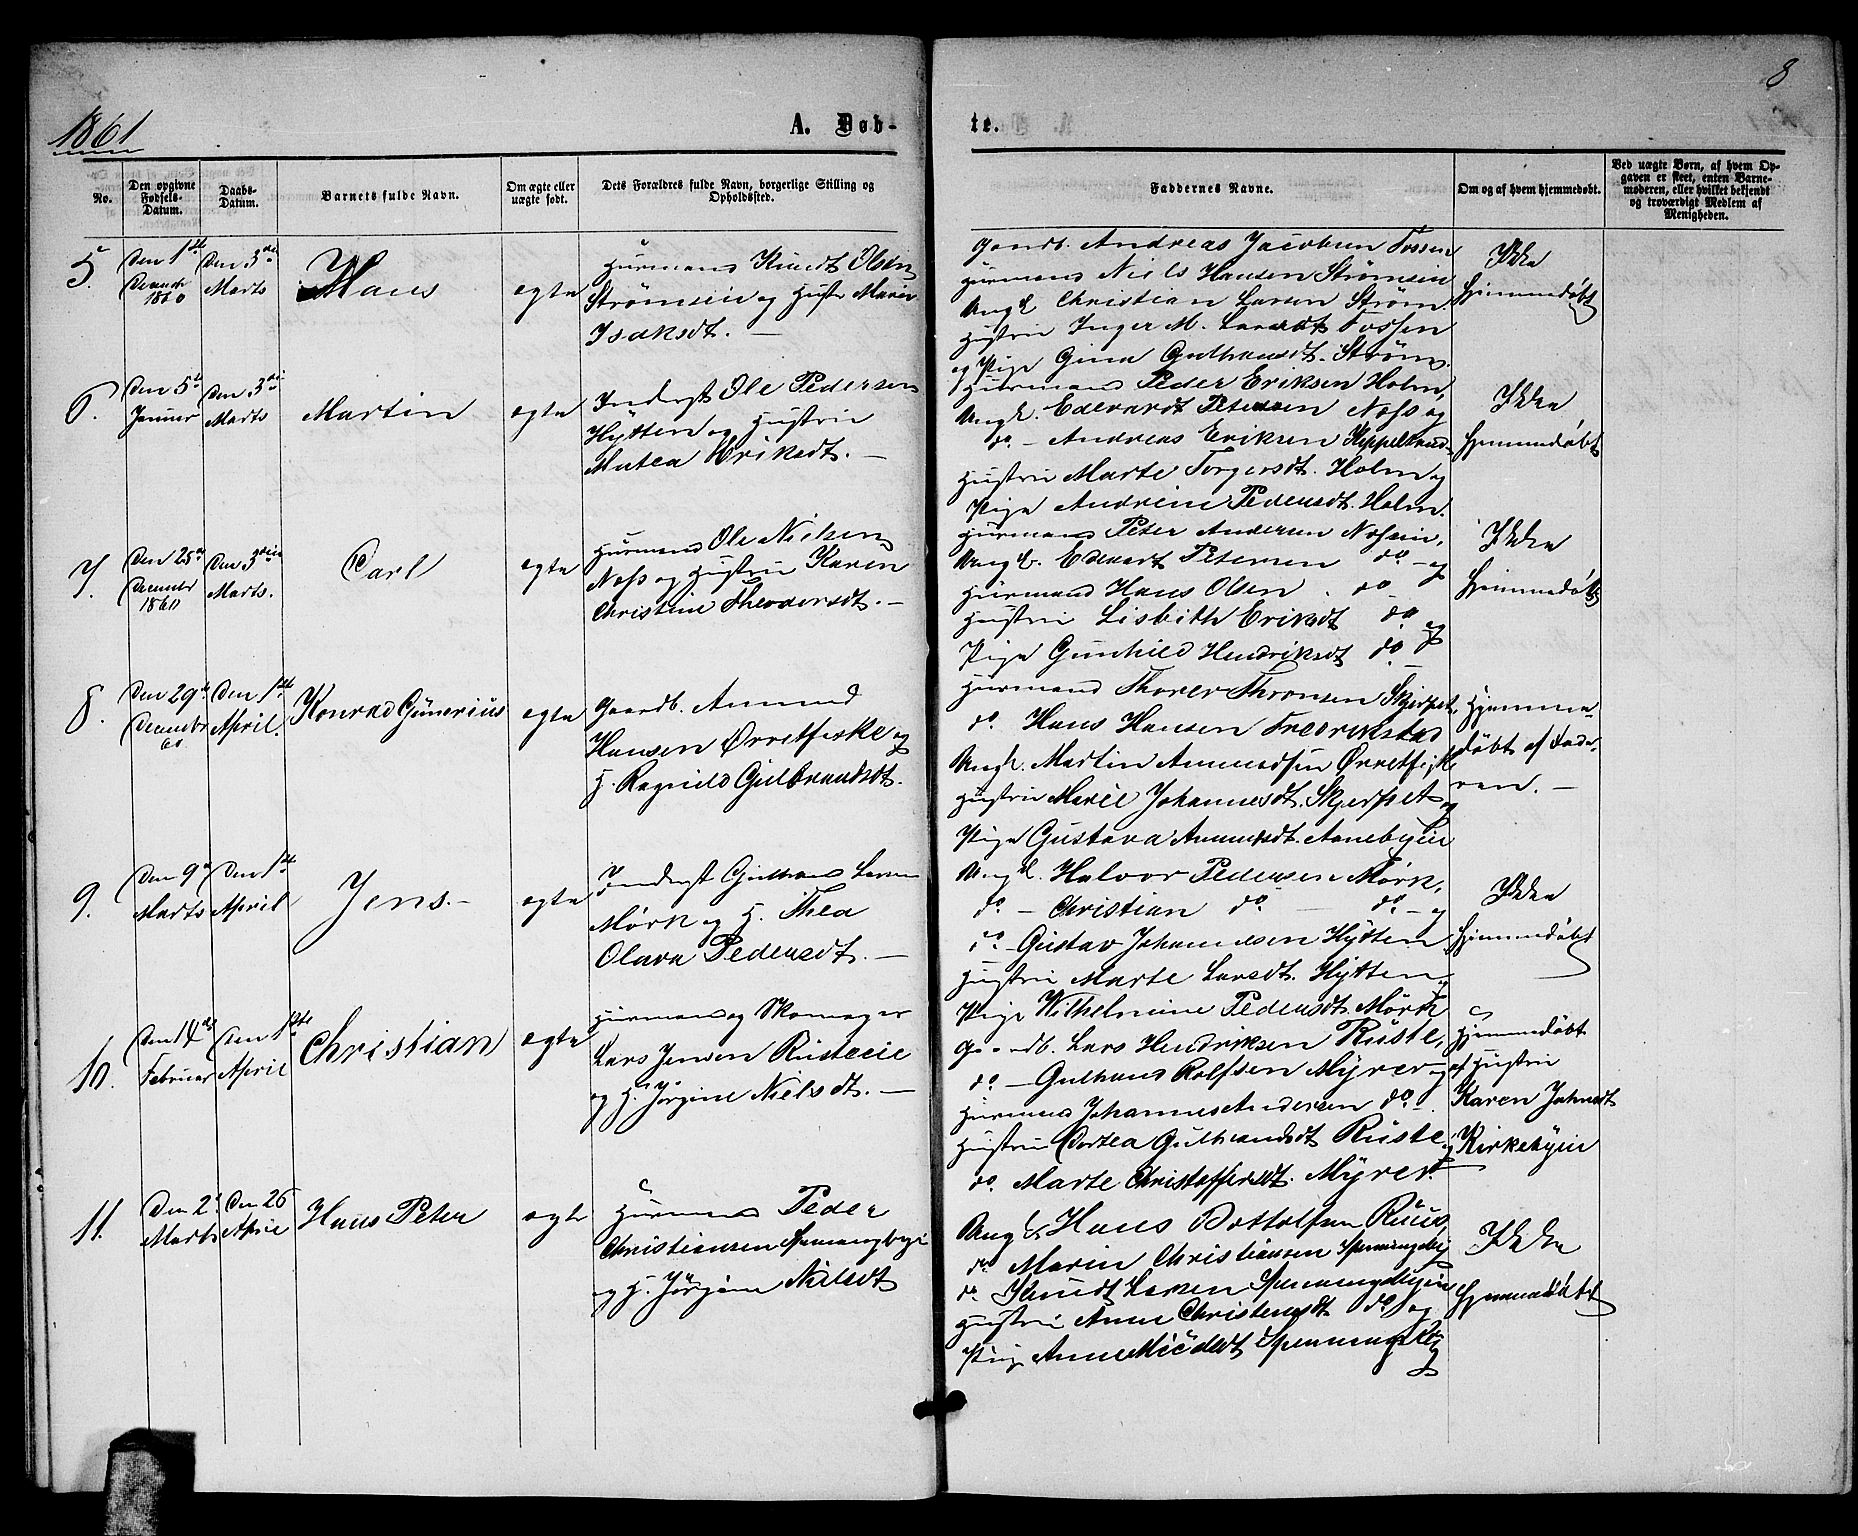 1861
A. Døb-
te.
8
No.
Den opgivne Fødsels-Datum.
Daabs-Datum.
Barnets fulde Navn.
Om ægte eller uægte født.
Dets Forældres fulde Navn, borgerlige Stilling og Opholdssted.
Faddernes Navne.
Om og af hvem hjemmedøbt.
Ved uægte Børn, af hvem Op-
gaven er skeet, enten Barne-
moderen, eller hvilket bekjendt
og troværdigt Medlem af
Menigheden.
5.
Den 1ste
December
1860
Den 3die
Marts
Hans
egte
Huusmand Knudt Olsen
Strømseie og Hustr Maria
Isaksdt. —
Gaardb. Andreas Jacobsen Fossen
Huusmand Niels Hansen Strømseie
Ungk Christian Larsen Strøm.
Hustru Inger M. Larsdt Fossen
og Pige Gina Gulbrandsdt. Strøm.
Ikke
hjemmedøbt
6.
Den 5te
Januar
Den 3die
Marts
Martin
egte
Inderst Ole Pedersen
Hytten og Hustru
Mathea Eriksdt. —
Huusmand Peder Eriksen Holm,
Ungk. Edevardt Petersen Næss og
do. - Andreas Eriksen
Hustru Marte Torgersdt. Holm og
Pige Andrine Pedersdt. Holm.
Ikke
hjemmedøbt
7.
Den 25de
December
1860
Den 3die
Marts.
Carl
egte
Huusmand Ole Nielsen
Næss og Hustru Karen
Christine Theodorsdt. —
Huusmand Peter Andersen Næsseie,
Ungk. Edevart Petersen do - og
Huusmand Hans Olsen do -
Hustru Lisbith Eriksdt do og
Pige Gunhild Hendriksdt do -
Ikke
hjemmedøbt
8.
Den 29de
December
60
Den 1ste
April.
Konrad Gunerius
egte
Gaardb. Amund
Hansen Ørretfiske og
H. Ragnild Gulbrandsdt.
Huusmand Thorer Thronsen Skjerpet,
do. Hans Hansen Fredrikstad
Ungk. Martin Amundsen Ørretfiske
Hustru Marie Johannesdt. Skjerpet og
Pige Gustava Amundsdt.
Hjemme-
døbt af Fade-
ren. —
9.
Den 9de
Marts
Den 1ste
April
Jens. -
egte
Inderst Gulbrand Larsen
Mørk og H. Thea
Olava Pedersdt. —
Ungk. Halvor Pedersen Mørk,
do. - Christian do. - do. - og
do - Gustav Johannesen Hytten
Hustru Marte Larsdt. Hytten og
Pige Wilhelmine Pedersdt. Mørk
Ikke
hjemmedøbt
10.
Den 14de
Februar
Den 1ste
April
Christian
egte
Huusmand og Skomager
Lars Jensen Rusteeie
og H. Jørgine Nielsdt. —
Gaardb. Lars Hendriksen Ruste,
do - Gulbrand Rolfsen Myrer og
Huusmand Johannes Andersen do. -
Hustru Dorthea Gulbrandsdt Ruste og
do. Marte Christoffersdt. Myrer.
Hjemmedøbt
af Hustru
Karen Johnsdt
Kirkebyeie
11.
Den 2
Marts
Den 26
April
Hans Peter
egte
Huusmand Peder
Christiansen
og H. Jørgine Nielsdt
Ungk Hans Bottolfsen Ruus,
do. Marin Christiansen
do. Knudt Larsen
Hustru Anne Christensdt do og
Pige Anne
Ikke
hjemmedøbt